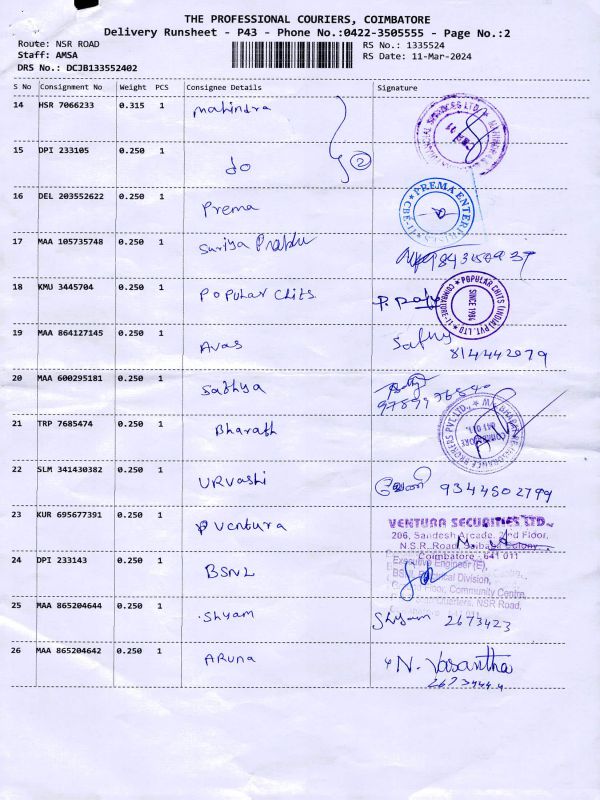 THE PROFESSIONAL COURIERS, COIMBATORE
Delivery Runsheet - P43 - Phone No.:0422-3505555 - Page No.:2
Route: NSR ROAD
RS No.: 1335524
Staff: AMSA
RS Date: 11-Mar-2024
DRS No.: DCJB133552402
S No Consignment No Weight PCS Consignee Details Signature
14 HSR 7066233 0.315 1 Mahindra
15 DPI 233105 0.250 1 do 2
16 DEL 203552622 0.250 1 Prema PREMA ENTERPRISES CBE-11
17 MAA 105735748 0.250 1 Suriya Prabhu
18 KMU 3445704 0.250 1 Popular Chits. POPULAR CHITS (INDIA) PVT. LTD. COIMBATORE-11 SINCE 1984
19 MAA 864127145 0.250 1 Avas 814442079
20 MAA 600295181 0.250 1 Sathya
21 TRP 7685474 0.250 1 Bharath
22 SLM 341430382 0.250 1 URvashi 9344502799
23 KUR 695677391 0.250 1 Ventura VENTURA SECURITIES LTD.,
206, Sandesh Arcade, 2nd Floor,
N.S.R. Road, Saibaba Colony,
Coimbatore - 641 011
24 DPI 233143 0.250 1 BSNL Executive Engineer (E),
Division,
Floor, Community Centre,
NSR Road,
25 MAA 865204644 0.250 1 Shyam Shyam 2673423
26 MAA 865204642 0.250 1 ARUNA N. Vasantha